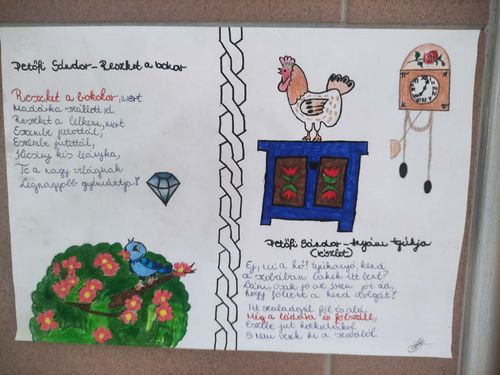 Petőfi Sándor - Reszket a bokor
Reszket a bokokor, mert
Madárka szállott rá
Reszket a lelkem, mert
Eszembe jutottál,
Eszembe jutottál,
Kicsiny kis leányka,
Te a nagy világnak
Legnagyobb gyémántja!
Petőfi Sándor - Anyám tyúkja
(részlet)
Ej, mi a kő! tyúkanyó, kend
A szobában lakik itt bent?
Lám, csak jó az isten, jót ád,
Hogy fölvitte a kend dolgát!
Itt szaladgál föl és alá,
Még a ládára is fölszáll,
Eszébe jut kotkodákol
S nem verik ki a szobából.